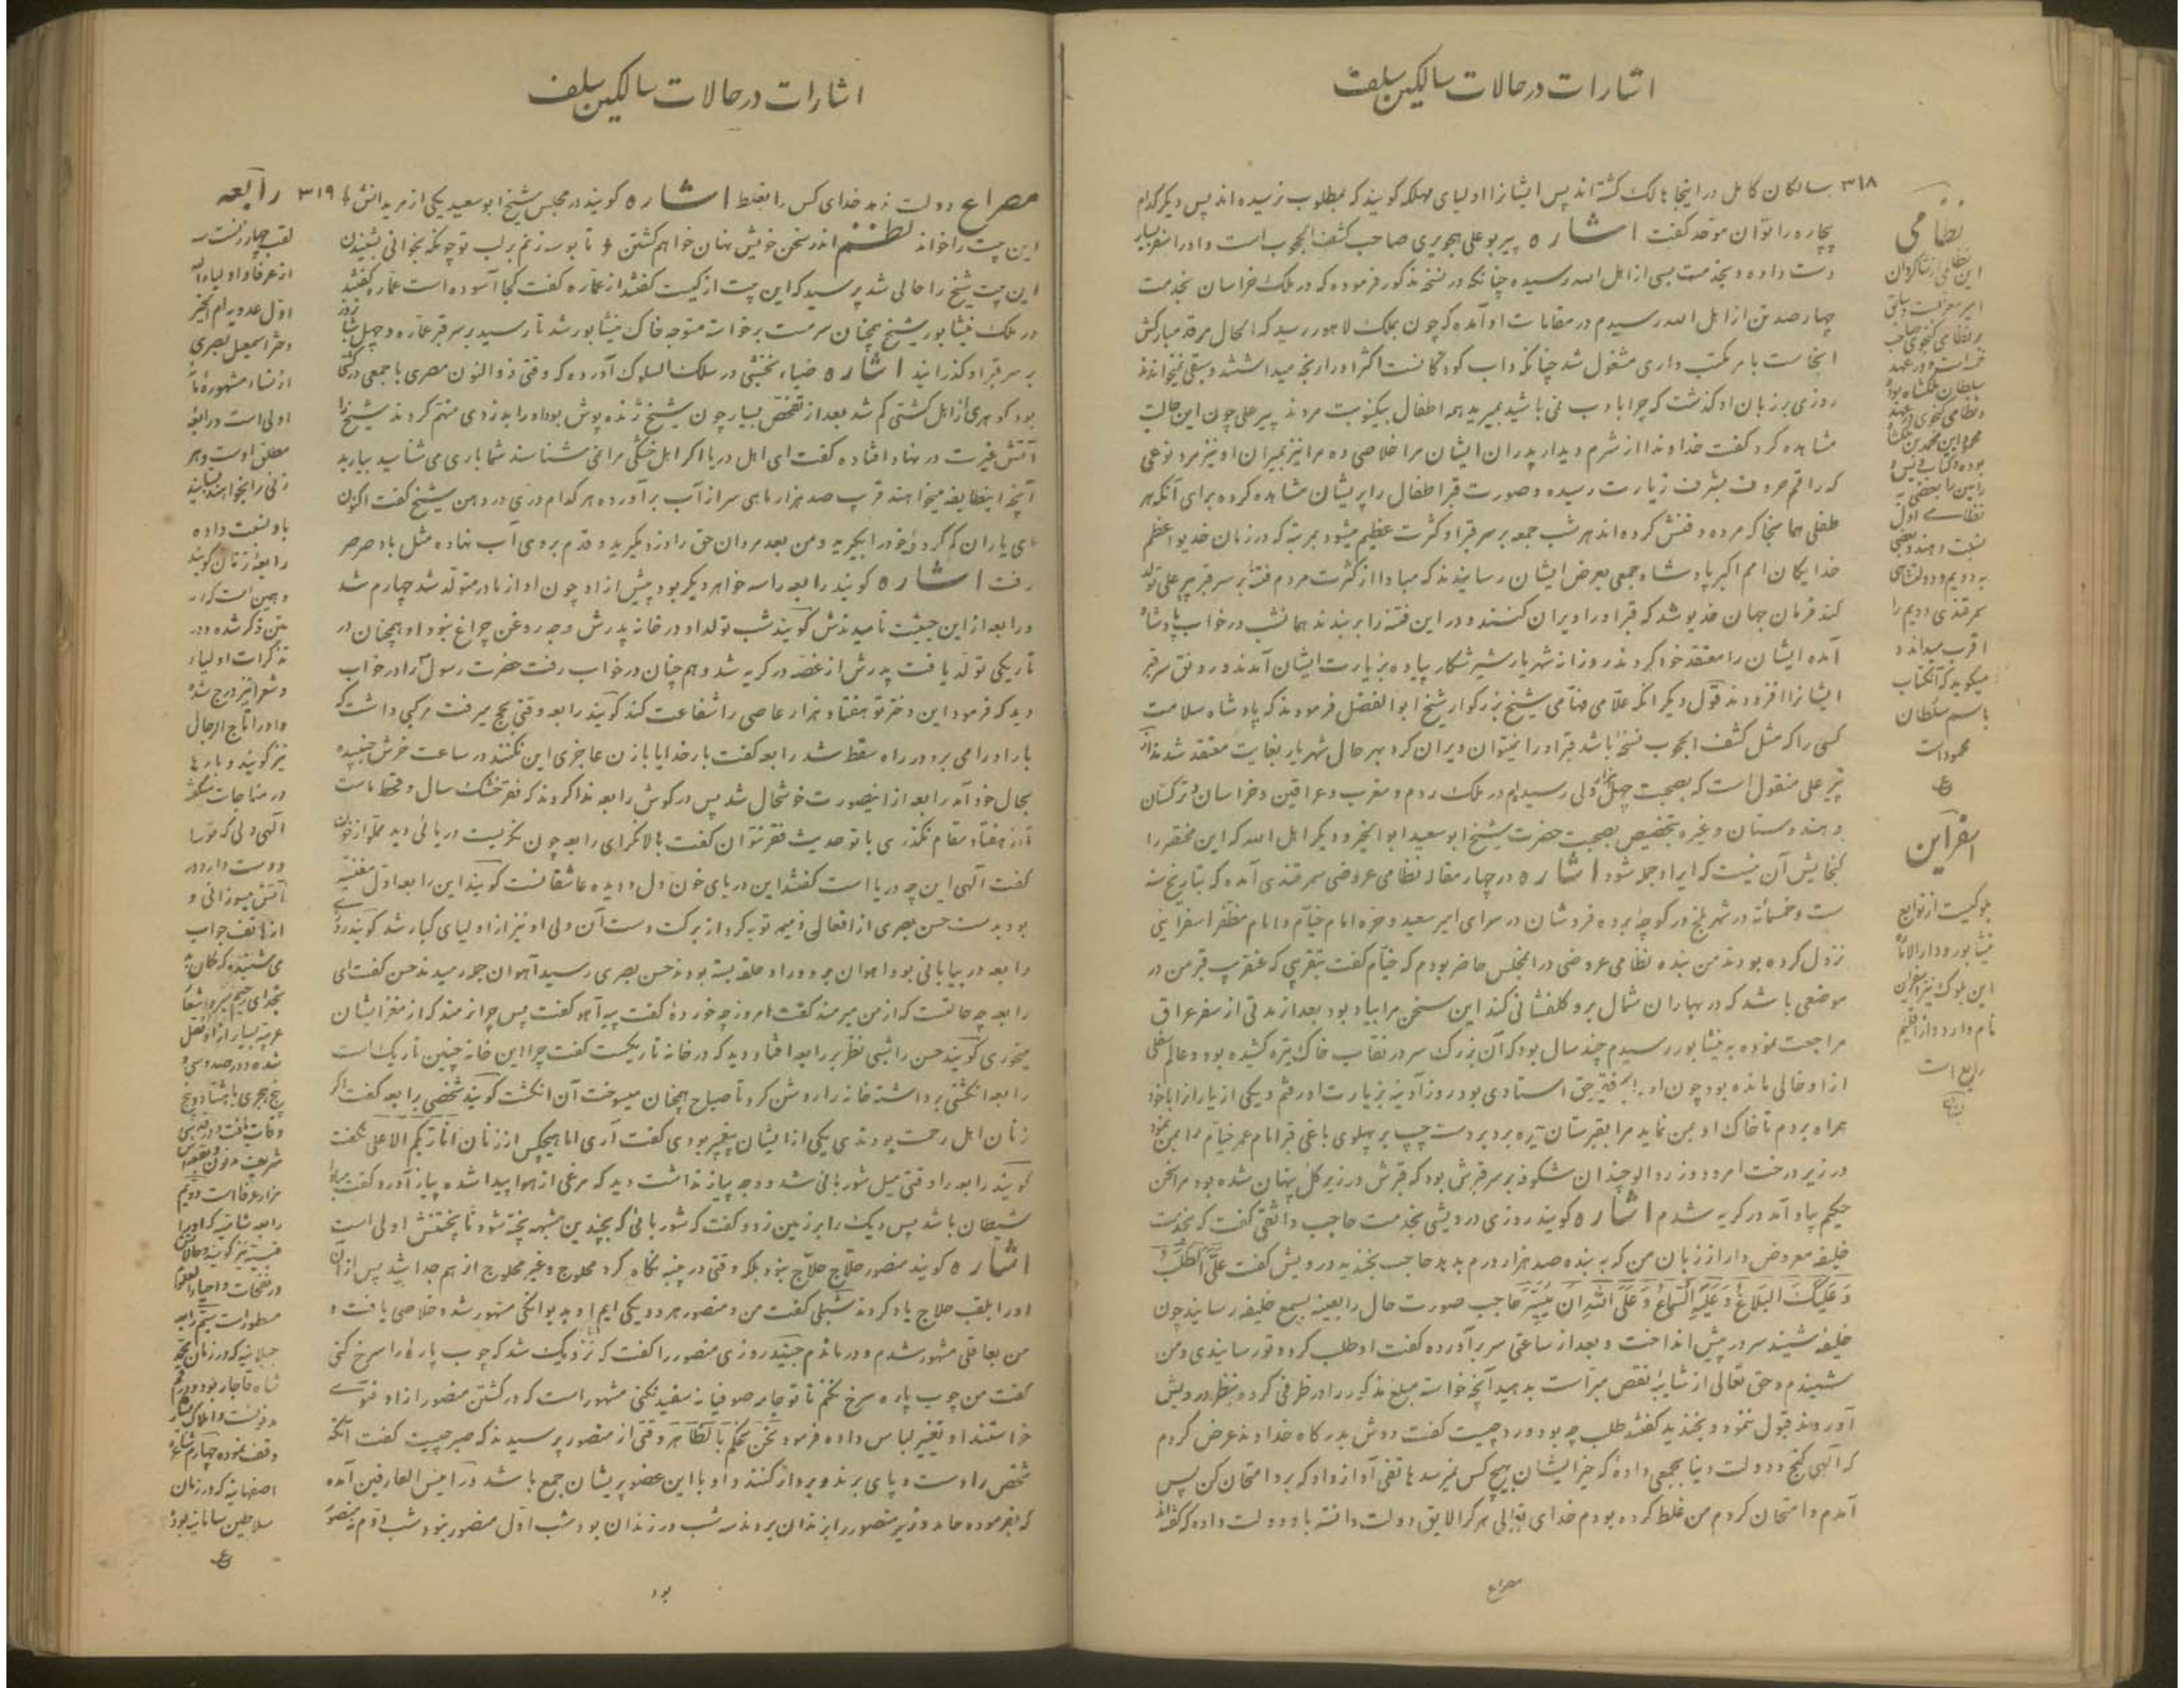 اشارات در حالات سالکین سلف
۳۱۸ سالکان کامل در اینجا هالک گشته‌اند پس ایشانرا اولیای مهلکه گویند که بمطلوب نرسیده‌اند پس دیگر کدام
بیچاره را توان موحد گفت اشاره پیر بوعلی هجویری صاحب کشف المحجوب است و او را سفر بسیار
دست داده و بخدمت بسی از اهل الله رسیده چنانکه در نسخه مذکور فرموده که در ملک خراسان بخدمت
چهار صد تن از اهل الله رسیدم در مقامات او آمده که چون بملک لاهور رسید که الحال مرقد مبارکش
اینجاست بامر مکتب داری مشغول شد چنانکه داب کودکانست اکثر او را رنجه میداشتند و سبقی نمیخواندند
روزی بر زبان او گذشت که چرا با ادب نمی باشید بمیرید همه اطفال بیکنوبت مردند پیر علی چون این حالت
مشاهده کرد گفت خداوندا از شرم دیدار پدران ایشان مرا خلاصی ده مرا نیز بمیران او نیز مرد نوعی
که راقم حروف بشرف زیارت رسیده و صورت قبر اطفال را پریشان مشاهده کرده برای آنکه هر
طفلی همانجا که مرده دفنش کرده‌اند هر شب جمعه بر سر قبر او کثرت عظیم میشود بمرتبه که در زمان خدیو اعظم
خدایگان امم اکبر پادشاه جمعی بعرض ایشان رسانیدند که مبادا از کثرت مردم فتنه بر سر قبر پیر علی تولد
کند فرمان جهان خدیو شد که قبر او را ویران کنند و در این فتنه را بر بندند همانشب در خواب پادشاه
آمده ایشان را معتقد خود کردند روزانه شهریار شیر شکار پیاده بزیارت ایشان آمدند و رونق سر قبر
ایشانرا افزودند قول دیگر آنکه علامی فهامی شیخ بزرگوار شیخ ابوالفضل فرمودند که پادشاه سلامت
کسی را که مثل کشف المحجوب نسخه باشد قبر او را نمیتوان ویران کرد بهر حال شهریار بغایت معتقد شدند از
پیر علی منقول است که بصحبت چهل هزار ولی رسیدیم در ملک روم و مغرب و عراقین و خراسان و ترکستان
و هندوستان و غیره بتخصیص بصحبت حضرت شیخ ابو سعید ابوالخیر و دیگر اهل الله که این مختصر را
گنجایش آن نیست که ایراد جمله شود اشاره در چهار مقاله نظامی عروضی سمرقندی آمده که بتاریخ سنه
ست و خمسمائه در شهر بلخ در کوچه برده فروشان در سرای امیر سعید و حره امام خیام و امام مظفر اسفراینی
نزول کرده بودند من بنده نظامی عروضی در انمجلس حاضر بودم که خیام گفت بتقریبی که عنقریب قبر من در
موضعی باشد که در بهاران شمال برو گلفشانی کند این سخن مرا بیاد بود بعد از مدتی از سفر عراق
مراجعت نموده به نیشابور رسیدم چند سال بود که آن بزرگ سر در نقاب خاک تیره کشیده بود و عالم سفلی
ازو خالی مانده بود چون او را بر فقیر حق استادی بود روز آدینه بزیارت او رفتم و یکی از یاران را با خود
همراه بردم تا خاک او بمن نماید مرا بقبرستان حیره برد بر دست چپ بر پهلوی باغی قبر امام عمر خیام را بمن نمود
در زیر درخت امرود و زردآلو چندان شکوفه بر سر قبرش بود که قبرش در زیر گل پنهان شده بود مرا سخن
حکیم بیاد آمد در گریه شدم اشاره گویند روزی درویشی بخدمت حاجب واثقی گفت که بخدمت
خلیفه معروض دار از زبان من که به بنده صد هزار درم بدید حاجب بخندید درویش گفت عَلَیَّ الطَّلَبُ
وَ عَلَیْکَ البَلاغُ وَ عَلَیْهِ السَّماعُ وَ عَلَی اللهِ اَن یُیَسِّرَ حاجب صورت حال را بعینه بسمع خلیفه رسانید چون
خلیفه شنید سر در پیش انداخت و بعد از ساعتی سر برآورده گفت او طلب کرد و تو رسانیدی و من
شنیدم و حق تعالی از شایبه نقص مبراست بدهید آنچه خواسته مبلغ مذکور را در ظرفی کرده بنظر درویش
آوردند قبول ننمود و بخندید گفتند طلب چه بود و رد چیست گفت دوش بدرگاه خداوند عرض کردم
که الهی گنج و دولت دنیا بجمعی داده که خیر ایشان بهیچ کس نمیرسد هاتفی آواز داد که برو امتحان کن پس
آمدم و امتحان کردم من غلط کرده بودم خدای تعالی هر کرا لایق دولت دانسته باو دولت داده که گفته‌اند
مصراع
نظامی
این نظامی از شاگردان
امیر معزیست
و نظامی گنجوی صاحب
خمسه است و در عهد
سلطان ملکشاه بوده
و نظامی گنجوی در عهد
محمود ابن محمد بن ملکشاه
بوده و کتاب ویس و
رامین را بعضی به
نظامی اول
نسبت دهند و بعضی
به دویم و دولتشاه
سمرقندی دویم را
اقرب میداند و
میگوید که آنکتاب
باسم سلطان
محمود است
اسفراین
بلوکیست از توابع
نیشابور و دارالاماره
این بلوک نیز اسفراین
نام دارد و از اقلیم
رابع است
اشارات در حالات سالکین سلف
مصراع دولت ندهد خدای کس را بغلط اشاره گویند در مجلس شیخ ابوسعید یکی از مریدانش ۳۱۹
این بیت را خواند نظم اندر سخن خویش نهان خواهم گشتن تا بوسه زنم بر لب تو چونکه بخوانی بشنیدن
این بیت شیخ را حالی شد پرسید که این بیت از کیست گفتند از عماره گفت کجا آسوده است عماره گفتند
در ملک نیشابور شیخ همچنان سرمست برخواسته متوجه خاک نیشابور شد تا رسید بر سر قبر عماره و چهل شبانروز
بر سر قبر او گذرانید اشاره ضیاء نخشبی در سلک السلوک آورده که وقتی ذوالنون مصری با جمعی در کشتی
بود گوهری از اهل کشتی گم شد بعد از تفحص بسیار چون شیخ ژنده پوش بود او را به دزدی متهم کردند شیخ را
آتش غیرت در نهاد افتاده گفت ای اهل دریا اگر اهل خشکی مرا نمی شناسند شما باری می شناسید بیارید
آنچه اینطایفه میخواهند قریب صد هزار ماهی سر از آب برآورده هر کدام دری در دهن شیخ گفت اکنون
ای یاران گم کرده خود را بگیرید و من بعد مردان حق را دزد مگیرید و قدم بروی آب نهاده مثل باد صرصر
رفت اشاره گویند رابعه را سه خواهر دیگر بود پیش از او چون او از مادر متولد شد چهارم شد
و رابعه از این حیثیت نامیدندش گویند شب تولد او در خانه پدرش وجه روغن چراغ نبود او همچنان در
تاریکی تولد یافت پدرش از غصه در گریه شد و هم چنان در خواب رفت حضرت رسول را در خواب
دید که فرمود این دختر تو هفتاد هزار عاصی را شفاعت کند گویند رابعه وقتی بحج میرفت مرکبی داشت که
بار او را می برد در راه سقط شد رابعه گفت بار خدایا با زن عاجزی این نکنند در ساعت خرش جنبیده
بحال خود آمد رابعه از اینصورت خوشحال شد پس در گوش رابعه ندا کردند که فقر خشک سال و قحط ماست
تا از هفتاد مقام نگذری با تو حدیث فقر نتوان گفت بالا نگر ای رابعه چون نگریست دریائی دید مملو از خون
گفت الهی این چه دریا است گفتند این دریای خون دل و دیده عاشقانست گویند این رابعه اول مغنیه
بود بدست حسن بصری از افعال ذمیمه توبه کرد از برکت دست آن ولی او نیز از اولیای کبار شد گویند روزی
رابعه در بیابانی بود آهوان بر دور او حلقه بسته بودند حسن بصری رسید آهوان جمله رمیدند حسن گفت ای
رابعه چه حالتست که از من میرمند گفت امروز چه خوردهٔ گفت پیه آهو گفت پس چرا نرمند که از مغز ایشان
میخوری گویند حسن را شبی نظر بر رابعه افتاد دید که در خانه تاریکست گفت چرا این خانه چنین تاریک است
رابعه انگشتی برداشته خانه را روشن کرد تا صباح همچنان میسوخت آن انگشت گویند شخصی برابعه گفت اگر
زنان اهل رحمت بودندی یکی از ایشان پیغمبر بودی گفت آری اما هیچکس از زنان انا ربکم الاعلی نگفت
گویند رابعه را وقتی میل شوربائی شد و وجه پیاز نداشت دید که مرغی از هوا پیدا شده پیاز آورد گفت مبادا
شیطان باشد پس دیگ را بر زمین زد و گفت که شوربائی که بچندین مشبهه پخته شود ناپختنش اولی است
اشاره گویند منصور حلاج حلاج نبود بلکه وقتی در پنبه نگاه کرد محلوج و غیر محلوج از هم جدا شد پس از آن
او را بلقب حلاج یاد کردند شبلی گفت من و منصور هر دو یکی ایم او بدیوانگی مشهور شد و خلاصی یافت و
من بعاقلی مشهور شدم و درماندم جنید روزی منصور را گفت که نزدیک شد که چوب پاره را سرخ کنی
گفت من چوب پاره سرخ نکنم تا تو جامه صوفیانه سفید نکنی مشهور است که در کشتن منصور ازو فتوی
خواستند او تغییر لباس داده فرمود نَحنُ نَحکُم بالظاهر وقتی از منصور پرسیدند که صبر چیست گفت آنکه
شخص را دست و پای برند و بر دار کنند و او با این عضو پریشان جمع باشد در انیس العارفین آمده
که بفرموده حامد وزیر منصور را بزندان بردند سه شب در زندان بود شب اول منصور نبود شب دوم نه منصور
بود
رابعه
لقب چهار زنست
از عرفا و اولیاءالله
اول عدویه ام الخیر
دختر اسمعیل بصری
از نساء مشهوره
اولی است و رابعه
مطلق اوست و هر
زنی را بخواهند بستایند
باو نسبت داده
رابعهٔ زمان گویند
و همین است که در
متن ذکر شده و در
تذکرات اولیاء
و شعرا نیز درج شده
و او را تاج الرجال
نیز گویند و بارها
در مناجات میگفته
الهی دلی که ترا
دوست دارد در
آتش میسوزانی و
از هاتف جواب
می شنیده که گمان بد
بخدای رحیم مبر و اشعار
عربیه بسیار ازو نقل
شده و در صد و سی و
پنج هجری یا هشتاد و پنج
وفات یافت
رابعه شامیه که او را
در نفحات و احیاء العلوم
مسطور است سیم رابعه
شاه قاجار بوده
مدفونست و املاک بسیار
وقف نموده چهارم رابعه
اصفهانیه که در زمان
سلاطین سامانیه بوده